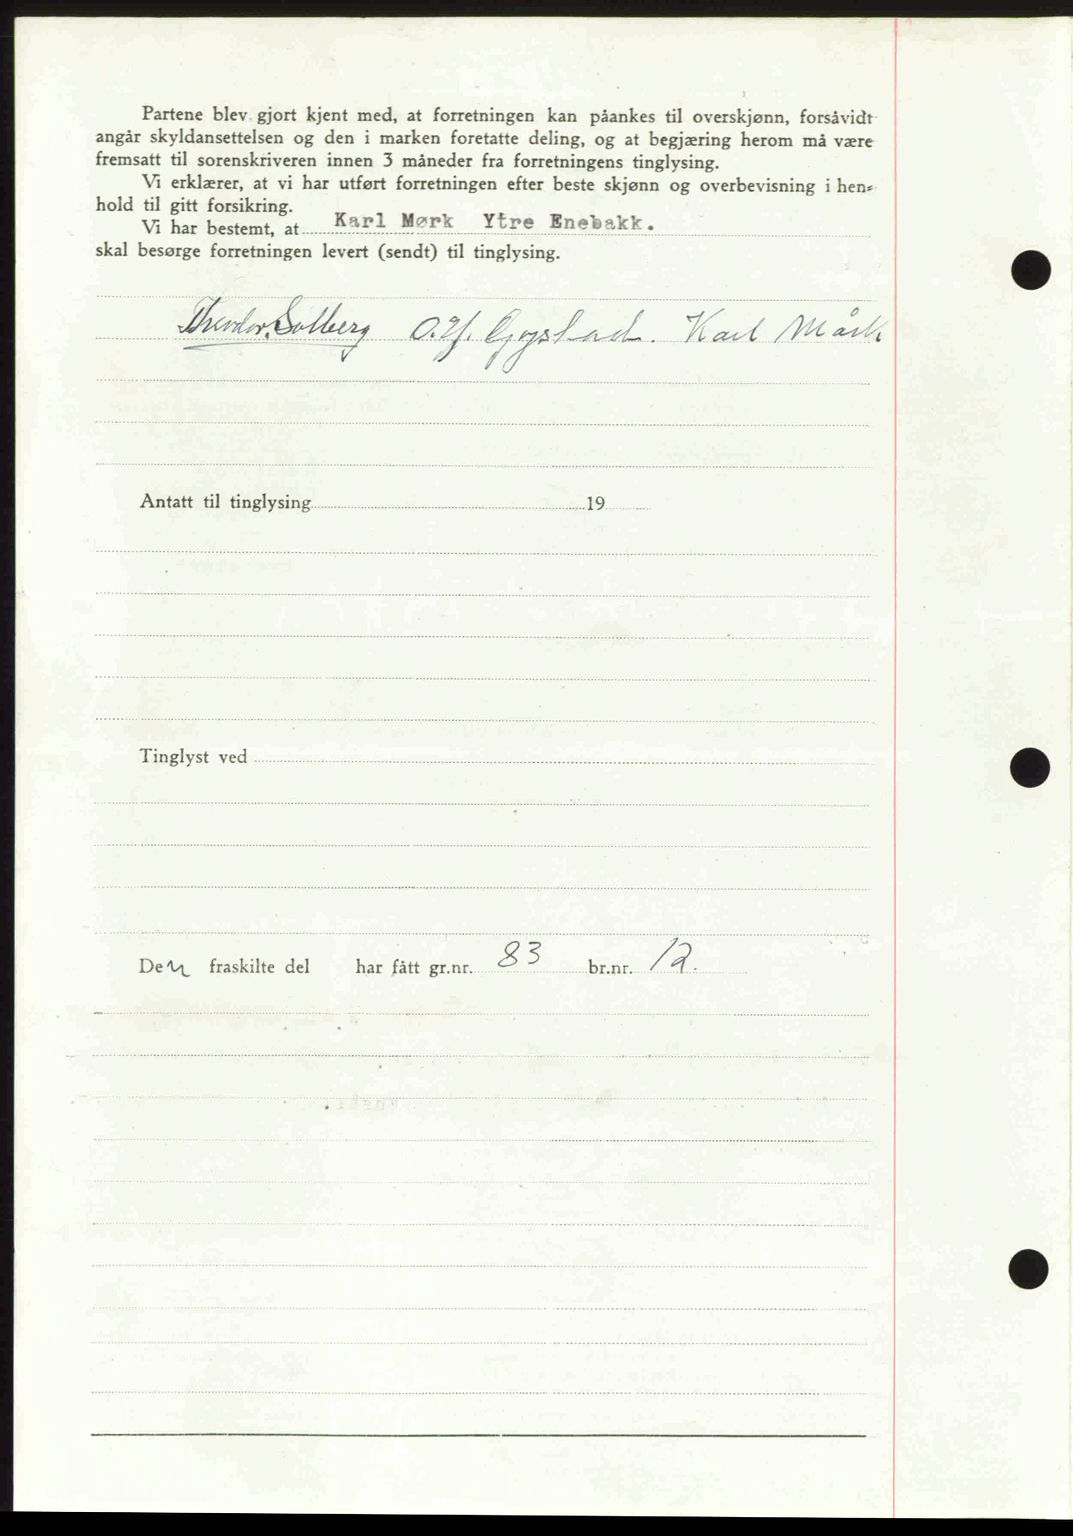 Partene blev gjort kjent med, at forretningen kan påankes til overskjønn, forsåvidt
angår skyldansettelsen og den i marken foretatte deling, og at begjæring herom må være
fremsatt til sorenskriveren innen 3 måneder fra forretningens tinglysing.
Vi erklærer, at vi har utført forretningen efter beste skjønn og overbevisning i hen-
hold til gitt forsikring.
Vi har bestemt, at Karl Mørk Ytre Enebakk.
skal besørge forretningen levert (sendt) til tinglysing.
Theodor Solberg O. H. Gystad. Karl Mørk
Antatt til tinglysing 19
Tinglyst ved
Den fraskilte del har fått gr.nr. 83 br.nr. 12.